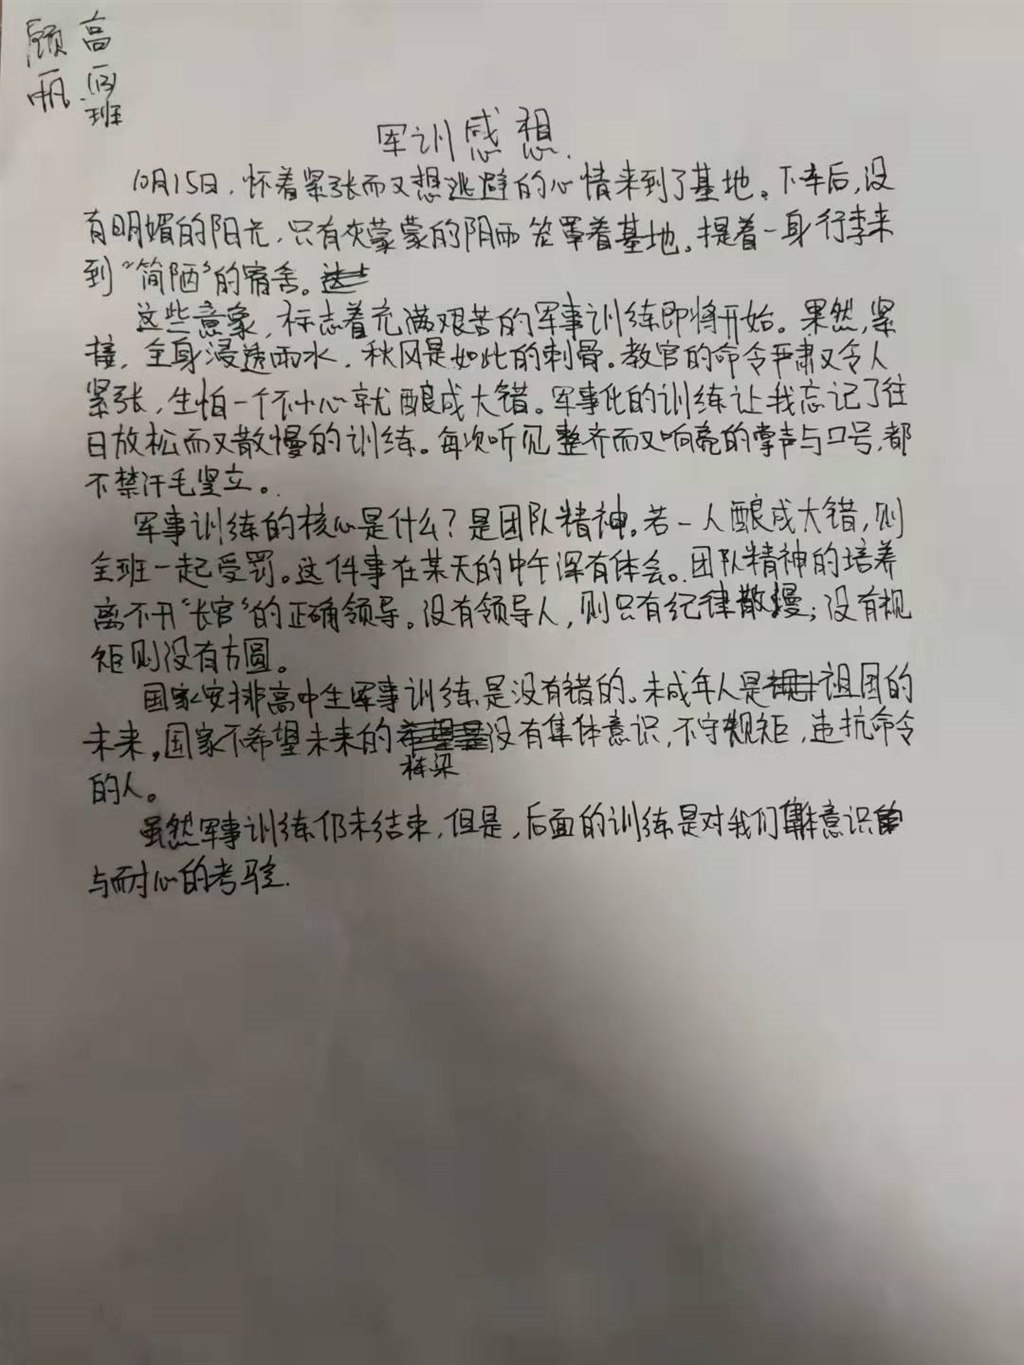 高一(13)班
顾帆
军训感想.
10月15日，怀着紧张而又想逃避的心情来到了基地。下车后，没
有明媚的阳光，只有灰蒙蒙的阴雨笼罩着基地。提着一身行李来
到“简陋”的宿舍。
这些意象，标志着充满艰苦的军事训练即将开始。果然，紧
接，全身浸透雨水，秋风是如此的刺骨。教官的命令严肃又令人
紧张，生怕一个不小心就酿成大错。军事化的训练让我忘记了往
日放松而又散慢的训练。每次听见整齐而又响亮的掌声与口号，都
不禁汗毛竖立。
军事训练的核心是什么？是团队精神。若一人酿成大错，则
全班一起受罚。这件事在某天的中午深有体会。团队精神的培养
离不开“长官”的正确领导。没有领导人，则只有纪律散慢；没有规
矩则没有方圆。
国家安排高中生军事训练是没有错的。未成年人是祖国的
未来，国家不希望未来的栋梁没有集体意识，不守规矩，违抗命令
的人。
虽然军事训练仍未结束，但是，后面的训练是对我们集体意识
与耐心的考验.